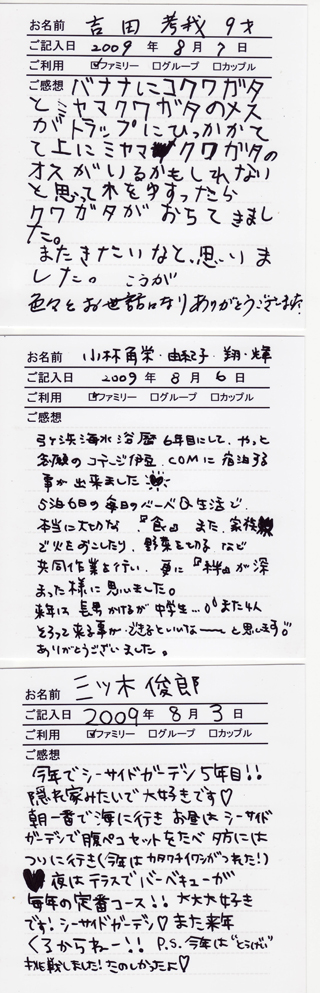 お名前 吉田 考我 9才
ご記入日 2009 年 8 月 7 日
ご利用 ☑ファミリー □グループ □カップル
ご感想 バナナにコクワガタ
とミヤマクワガタのメス
がトラップにひっかかて
て上にミヤマクワガタの
オスがいるかもしれない
と思って木をゆすったら
クワガタがおちてきまし
た。
またきたいなと、思いりま
した。 こうが
色々とお世話になりありがとうございました
お名前 小林角栄・由紀子・翔・輝
ご記入日 2009 年 8 月 6 日
ご利用 ☑ファミリー □グループ □カップル
ご感想
弓ヶ浜海水浴暦6年目にして、やっと
念願のコテージ伊豆.COMに宿泊する
事が出来ました
5泊6日の毎日のバーベQ生活で
本当に大切な『食』また、家族
で火をおこしたり、野菜を切るなど
共同作業を行い、更に『絆』が深
まった様に思いました。
来年は長男かけるが中学生…また4人
そろって来る事ができるといいなーと思います。
ありがとうございました。
お名前 三ツ木 俊郎
ご記入日 2009 年 8 月 3 日
ご利用 ☑ファミリー □グループ □カップル
ご感想
今年でシーサイドガーデン5年目!!
隠れ家みたいで大好きです♡
朝一番で海に行き お昼は シーサイド
ガーデンで腹ペコセットをたべ 夕方には
つりに行き(今年はカタクチイワシがつれた!)
♥夜はテラスでバーベキューが
毎年の定番コース!! 大大大好き
です! シーサイドガーデン♡ また来年
くるからねー!! P.S. 今年は"とうげい"
挑戦しました! たのしかったよ♡